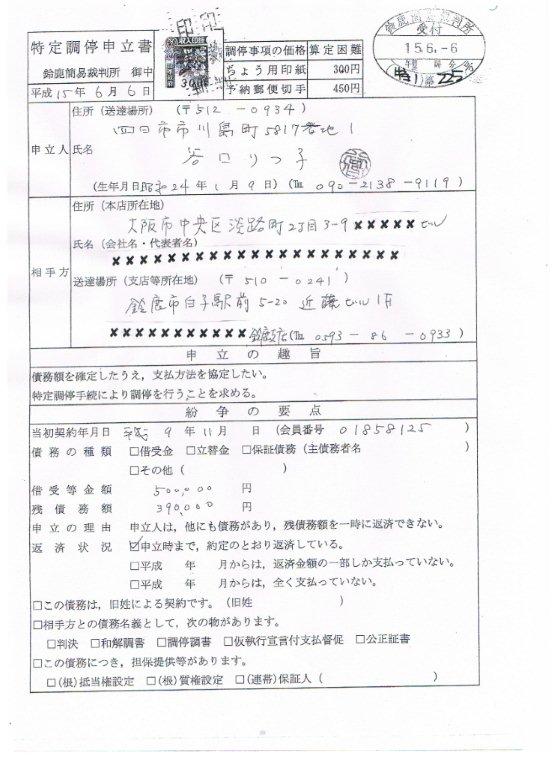 特定調停申立書
鈴鹿簡易裁判所 御中
平成15年6月6日
印 印
300円
調停事項の価格 算定困難
ちょう用印紙 300円
予納郵便切手 450円
鈴鹿簡易裁判所
受付
15.6.-6
(特)第225号
申立人
住所（送達場所） （〒512-0934）
四日市市川島町5817番地1
氏名
谷口りつ子
（生年月日昭和24年1月9日）（℡ 090-2138-9119）
相手方
住所（本店所在地）
大阪市中央区淡路町2丁目3-9 ×××××ビル
氏名（会社名・代表者名）
××××××××××××××××××××××
送達場所（支店等所在地） （〒510-0241）
鈴鹿市白子駅前5-20 近藤ビル1F
×××××××××××鈴鹿店（℡ 0593-86-0933）
申立の趣旨
債務額を確定したうえ，支払方法を協定したい。
特定調停手続により調停を行うことを求める。
紛争の要点
当初契約年月日 平成9年11月 日（会員番号 01858125 ）
債務の種類 □借受金 □立替金 □保証債務（主債務者名 ）
□その他（ ）
借受等金額 500,000 円
残債務額 390,000 円
申立の理由 申立人は，他にも債務があり，残債務額を一時に返済できない。
返済状況 ☑申立時まで，約定のとおり返済している。
□平成 年 月からは，返済金額の一部しか支払っていない。
□平成 年 月からは，全く支払っていない。
□この債務は，旧姓による契約です。（旧姓 ）
□相手方との債務名義として，次の物があります。
□判決 □和解調書 □調停調書 □仮執行宣言付支払督促 □公正証書
□この債務につき，担保提供等があります。
□(根)抵当権設定 □(根)質権設定 □(連帯)保証人（ ）